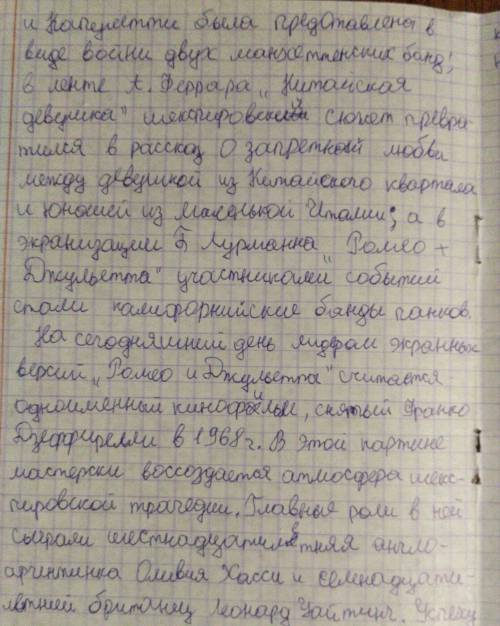 и Капулетти была представлена в
виде войны двух манхеттенских банд;
в ленте А. Феррара „Китайская
девушка" шекспировский сюжет превра
тился в рассказ о запретной любви
между девушкой из Китайского квартала
и юношей из Маленькой Италии; а в
экранизации Б Лурманна „Ромео +
Джульетта" участниками событий
стали калифорнийские банды панков.
На сегодняшний день лидером экранных
версий „Ромео и Джульетта" считается
одноименный кинофильм, снятый Франко
Дзеффирелли в 1968 г. В этой картине
мастерски воссоздается атмосфера шекс-
пировской трагедии. Главные роли в ней
сыграли шестнадцатилетняя англо-
аргентинка Оливия Хасси и семнадцати-
летний британец Леонард Уайтинг. Успеху